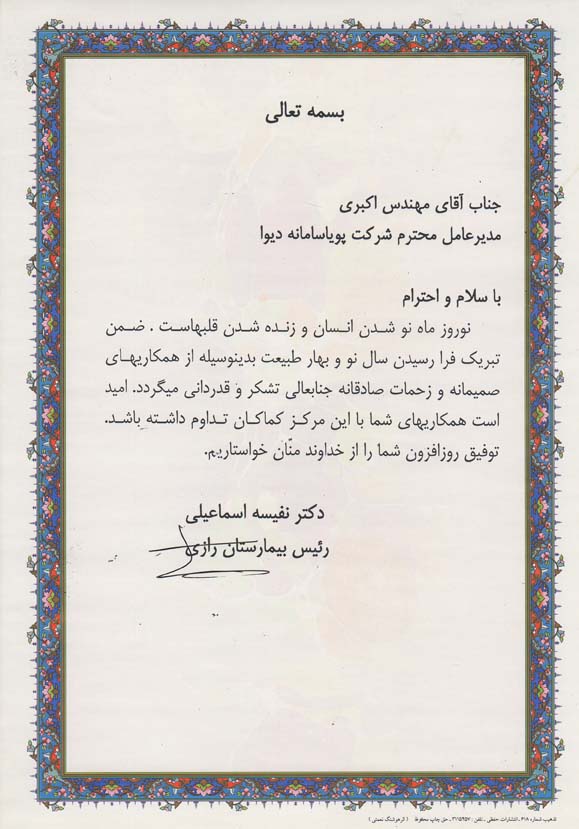 بسمه تعالی
جناب آقای مهندس اکبری
مدیرعامل محترم شرکت پویاسامانه دیوا
با سلام و احترام
نوروز ماه نو شدن انسان و زنده شدن قلبهاست . ضمن
تبریک فرا رسیدن سال نو و بهار طبیعت بدینوسیله از همکاریهای
صمیمانه و زحمات صادقانه جنابعالی تشکر و قدردانی میگردد. امید
است همکاریهای شما با این مرکز کماکان تداوم داشته باشد.
توفیق روزافزون شما را از خداوند منّان خواستاریم.
دکتر نفیسه اسماعیلی
رئیس بیمارستان رازی
تذهیب شماره ۶۱۸ ـ انتشارات حنفی ـ تلفن : ۳۷۱۵۹۵۷ ـ حق چاپ محفوظ